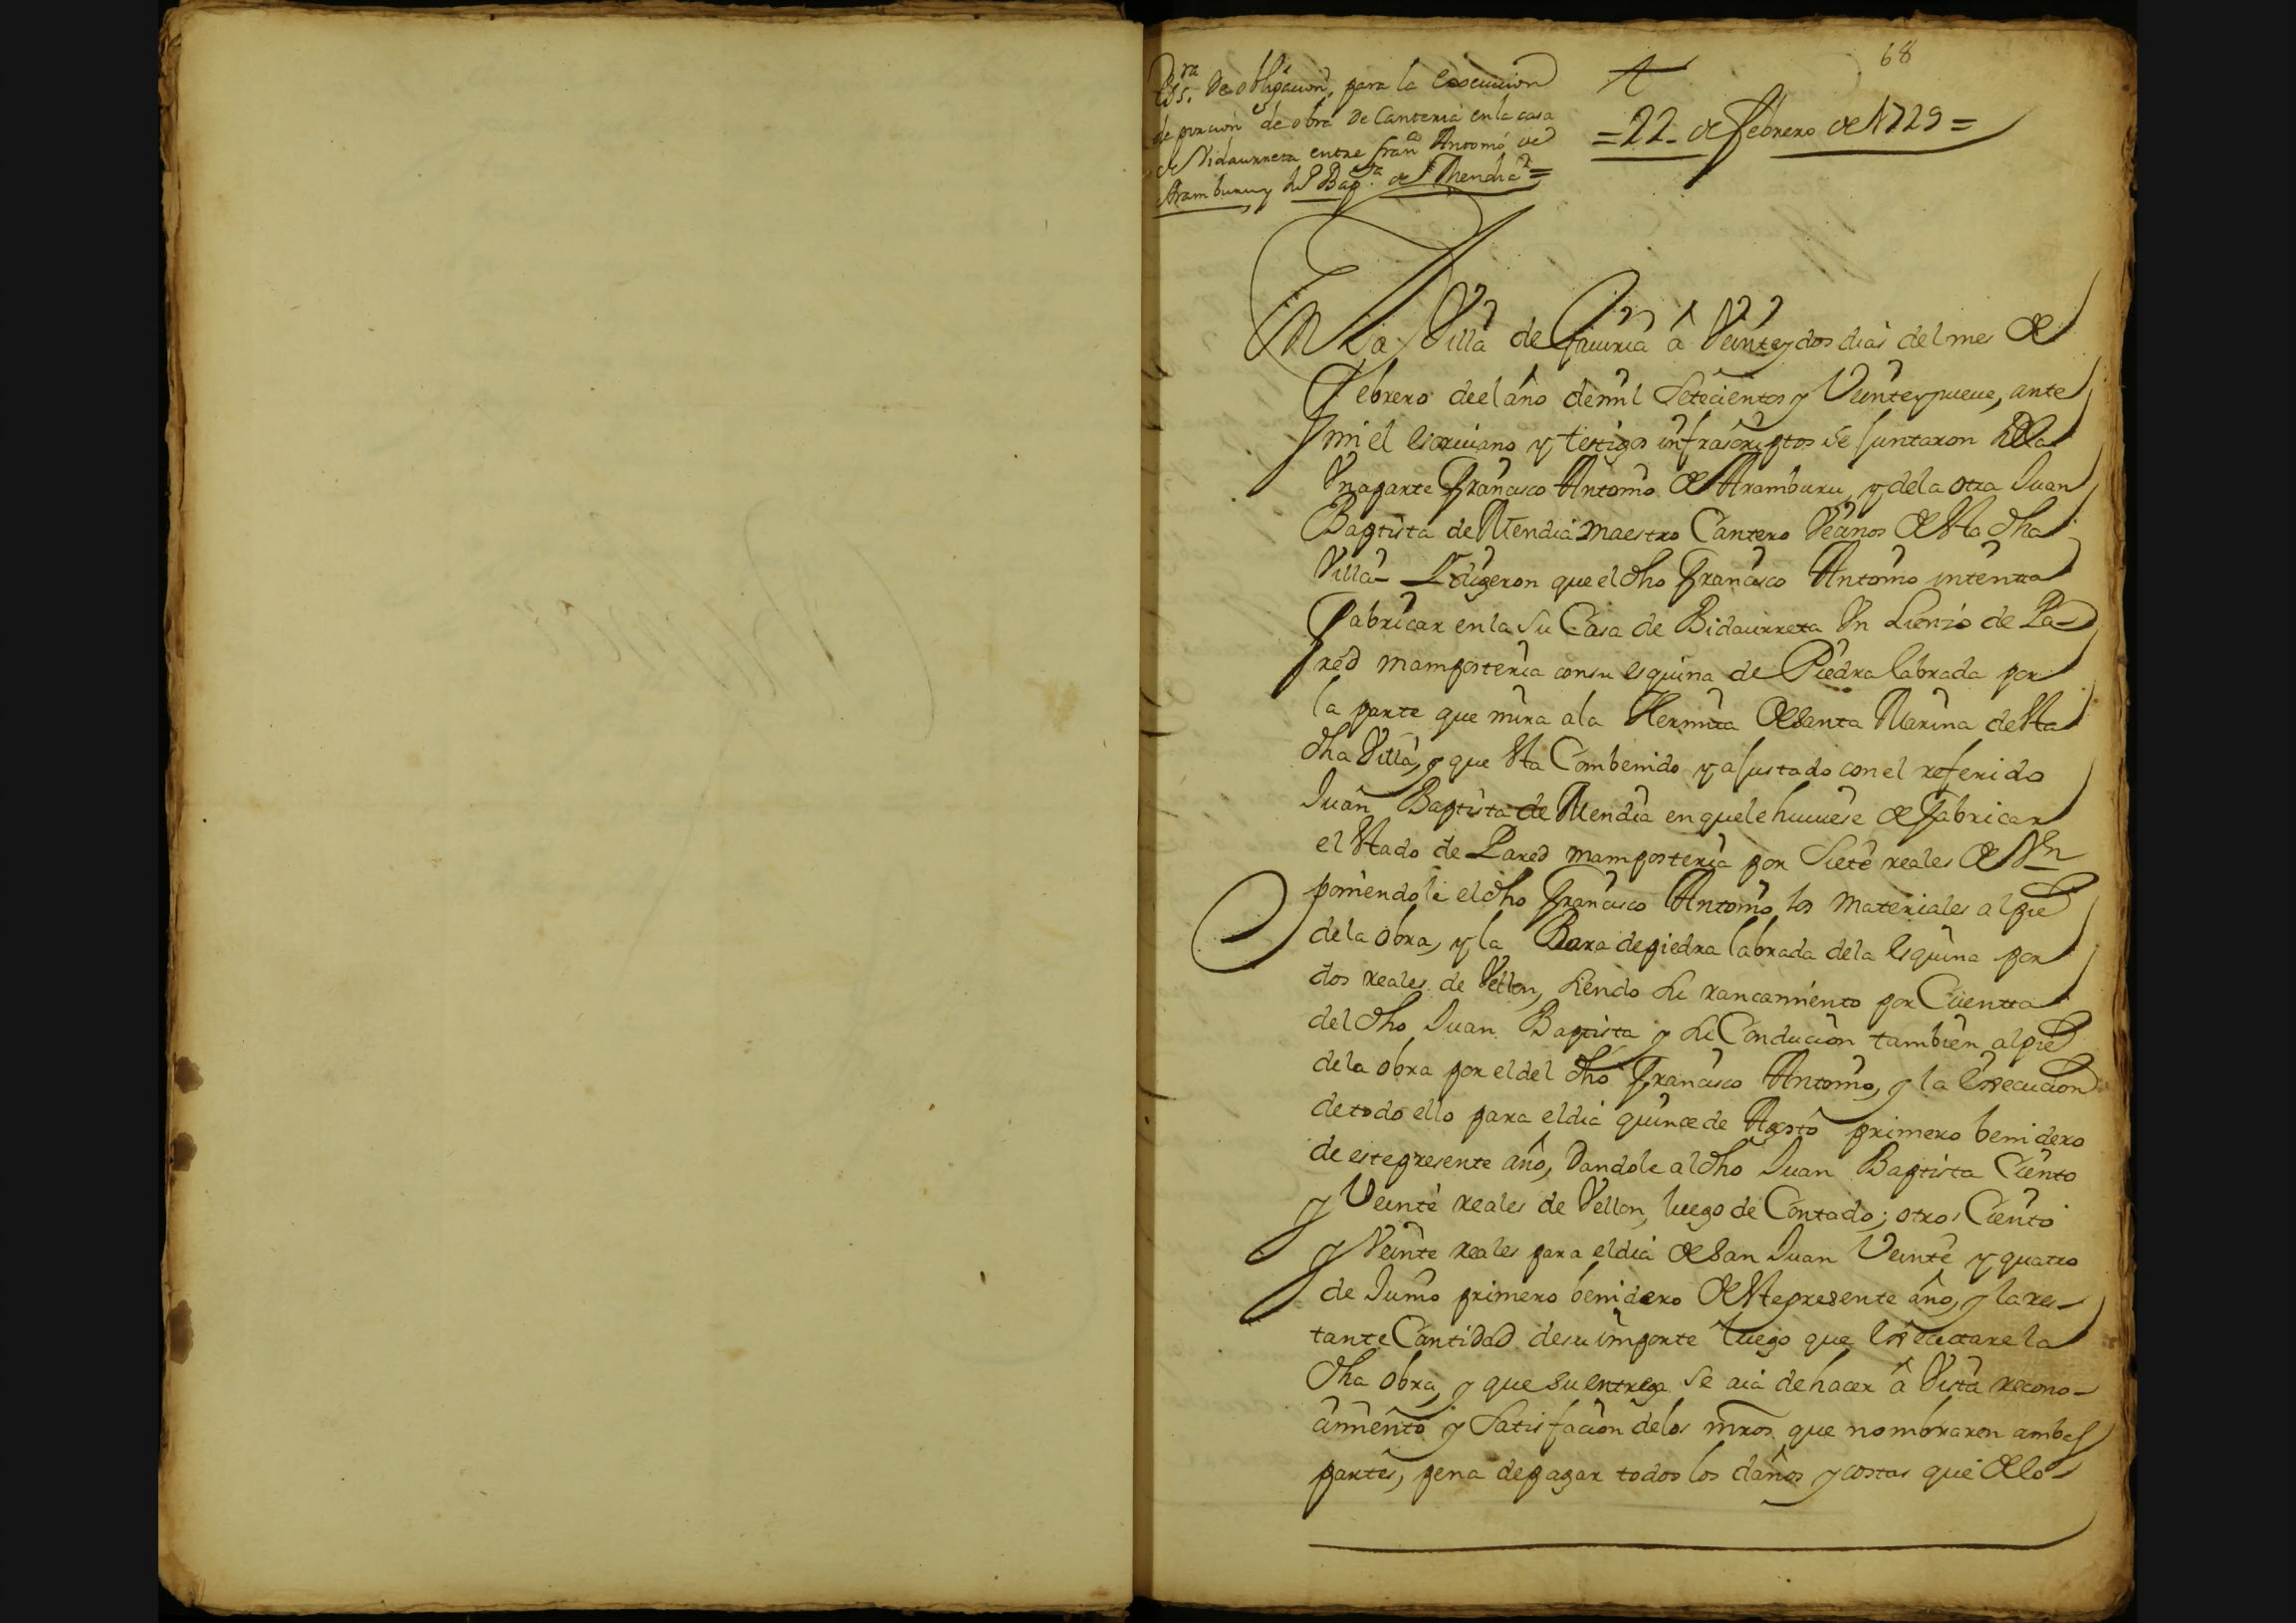 68
Esra. de obligacion, para la execucion
de porcion de obra de Canteria en la casa
de Vidaurreta entre franco Antonio de
Aramburu y Jul Bapta. de Mendia =
= 22 de febrero de 1729 =
En La Villa de Gauiria â Veinte y dos dias del mes de
Febrero de el año de mil Setecientos y Veinte y nueve, ante
mi el escriuano y testigos infrascriptos se Juntaron de la
Una parte Francisco Antonio de Aramburu, y dela otra Juan
Baptista de Mendia Maestro Cantero Vecinos de esta dha
Villa = Y digeron que el dho Francisco Antonio intenta
Fabricar en la su Casa de Bidaurreta Un Lienzo de Pa-
red mamposteria con su esquina de Piedra labrada por
la parte que mira a la Hermita de Santa Marina de esta
dha Villa, y que esta Combenido y aJustado con el referido
Juan Baptista de Mendia en que le huuiese de Fabricar
el estado de Pared mamposteria por Siete reales de Vn
poniendole el dho Francisco Antonio los Materiales al pie
de la obra, y la Bara de piedra labrada de la esquina por
dos reales de Vellon, siendo su rancamiento por Cuenta
del dho Juan Baptista y su Conducion tambien al pie
de la obra por el del dho Francisco Antonio, y la execucion
de todo ello para el dia quince de Agosto primero benidero
de este presente año, Dandole al dho Juan Baptista Ciento
y Veinte reales de Vellon, luego de Contado; otros Ciento
y Veinte reales para el dia de San Juan Veinte y quatro
de Junio primero benidero de este presente año, y la res-
tante Cantidad de su importe luego que executare la
dha obra, y que su entrega se aia de hacer â Vista recono-
cimiento y Satisfacion de los mros. que nombraren ambas
partes, pena de pagar todos los daños y costas que de lo